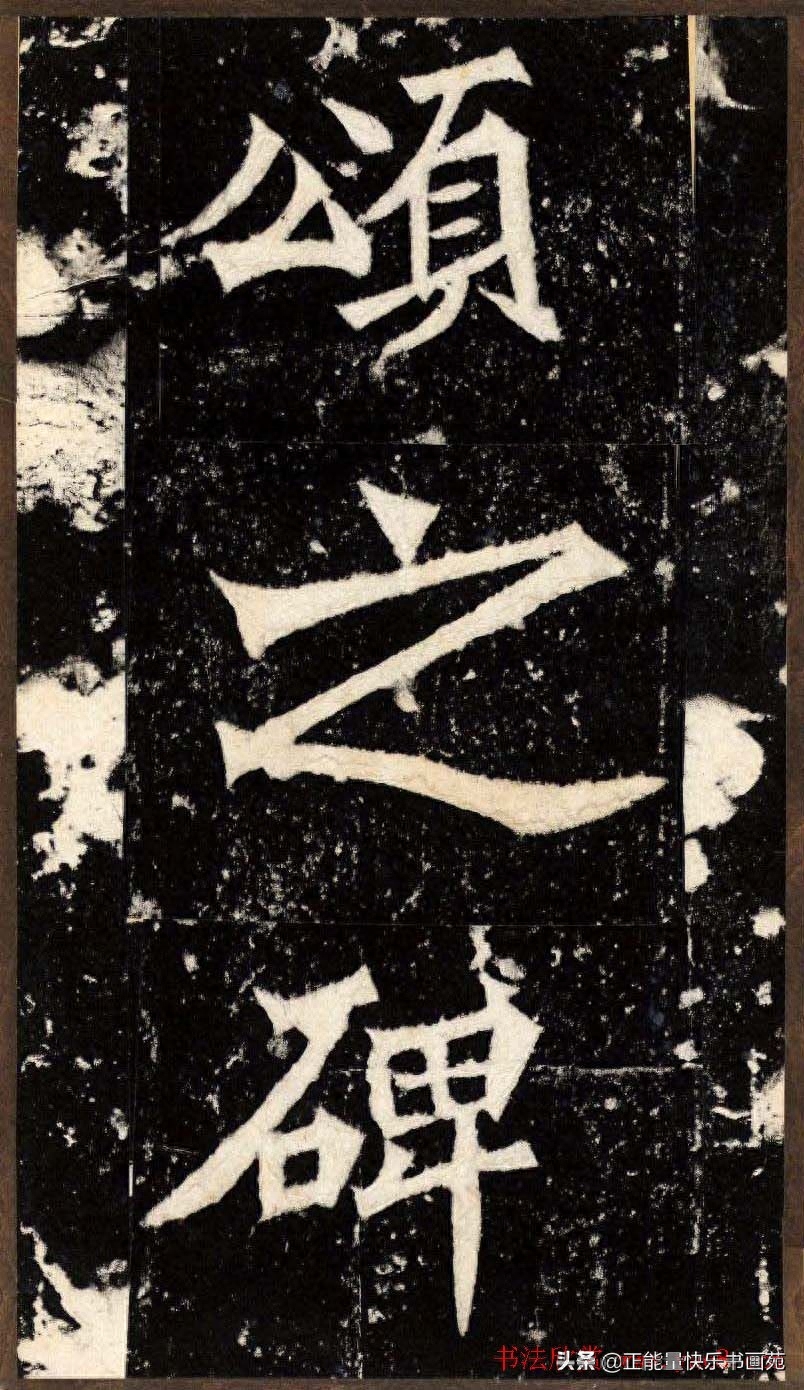 頌
之
碑
书法欣赏
头条 @正能量快乐书画苑